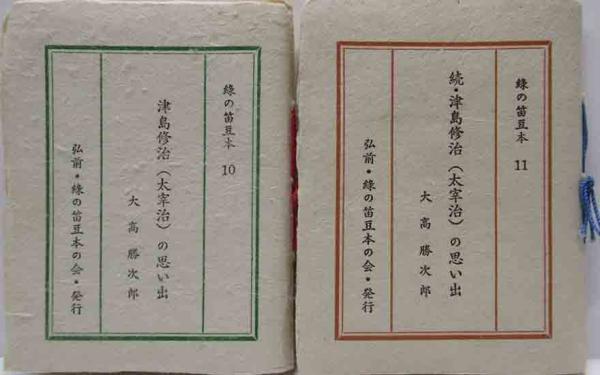 緑の笛豆本 10
津島修治(太宰治)の思い出
大高勝次郎
弘前・緑の笛豆本の会・発行
緑の笛豆本 11
続・津島修治(太宰治)の思い出
大高勝次郎
弘前・緑の笛豆本の会・発行